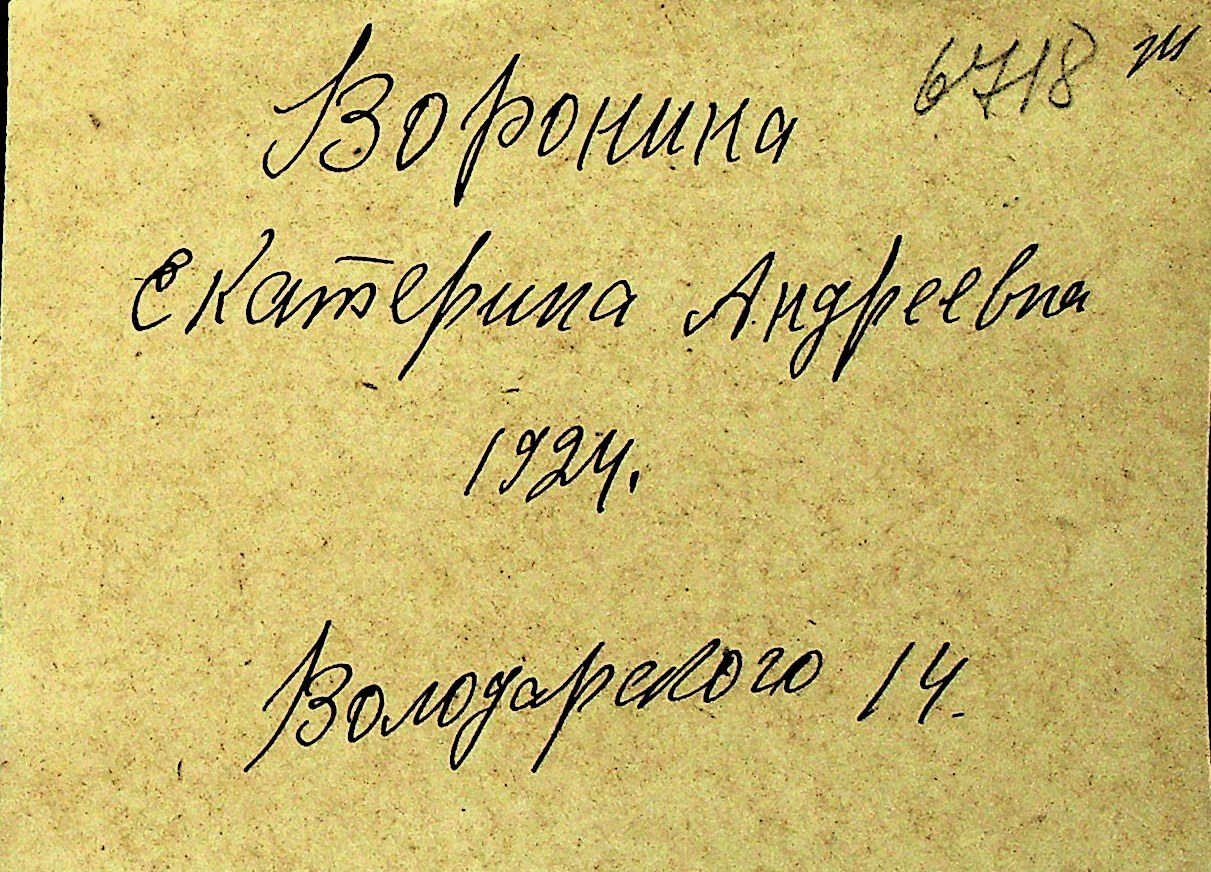 6718
Воронина
Екатерина Андреевна
1924.
Володарского 14.